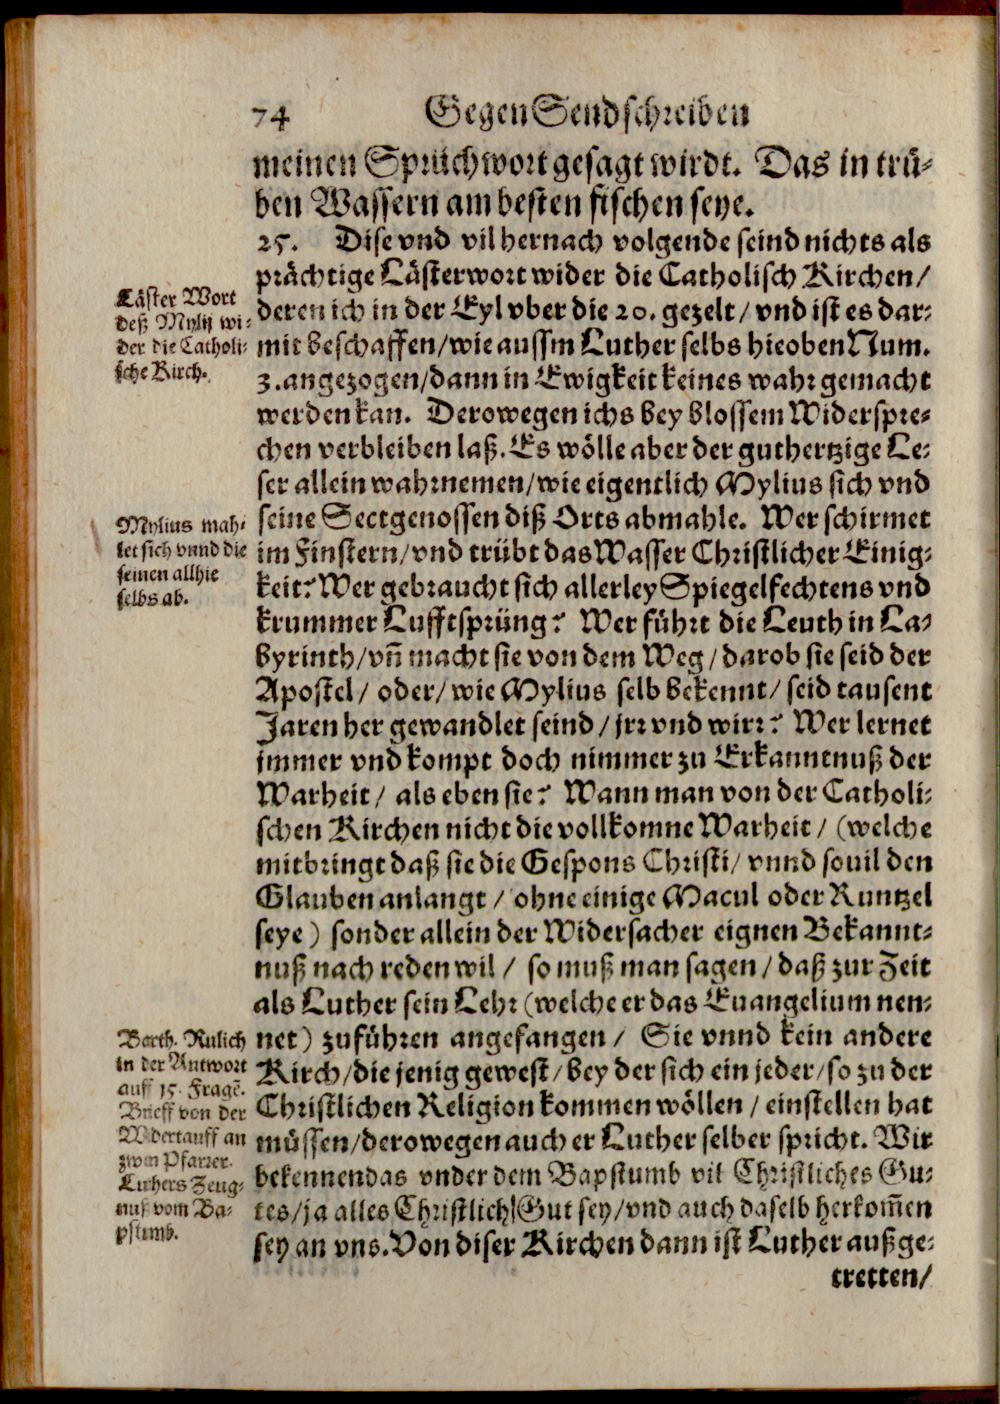 74 Gegen Sendschreiben
meinen Sprüchwort gesagt wirdt. Das in trü-
ben Wassern am besten fischen seye.
25. Dise vnd vil hernach volgende seind nichts als
prächtige Lästerwort wider die Catholisch Kirchen/
Läster Wort
deß Mylij wi-
der die Catholi-
sche Kirch.
deren ich in der Eyl vber die 20. gezelt/ vnd ist es dar-
mit beschaffen/ wie aussm Luther selbs hieoben Num.
3. angezogen/ dann in Ewigkeit keines wahr gemacht
werden kan. Derowegen ichs bey blossem Widerspre-
chen verbleiben laß. Es wölle aber der guthertzige Le-
ser allein wahrnemen/ wie eigentlich Mylius sich vnd
Mylius mah-
let sich vnnd die
seinen allhie
selbs ab.
seine Sectgenossen diß Orts abmahle. Wer schirmet
im Finstern/ vnd trübt das Wasser Christlicher Einig-
keit? Wer gebraucht sich allerley Spiegelfechtens vnd
krummer Lufftsprüng? Wer führt die Leuth in La-
byrinth/ vñ macht sie von dem Weg/ darob sie seid der
Apostel/ oder/ wie Mylius selb bekennt/ seid tausent
Jaren her gewandlet seind/ jrr vnd wirr? Wer lernet
jmmer vnd kompt doch nimmer zu Erkanntnuß der
Warheit/ als eben sie? Wann man von der Catholi-
schen Kirchen nicht die vollkomne Warheit/ (welche
mitbringt daß sie die Gespons Christi/ vnnd souil den
Glauben anlangt/ ohne einige Macul oder Runtzel
seye) sonder allein der Widersacher eignen Bekannt-
nuß nach reden wil/ so muß man sagen/ daß zur Zeit
als Luther sein Lehr (welche er das Euangelium nen-
Barth. Rulich
in der Antwort
auff 15. Fragē.
Brieff von der
Widertauff an
zwen Pfarrer.
Luthers Zeug-
nuß vom Ba-
pstumb.
net) zuführen angefangen/ Sie vnnd kein andere
Kirch/ die jenig gewest/ bey der sich ein jeder/ so zu der
Christlichen Religion kommen wöllen/ einstellen hat
müssen/ derowegen auch er Luther selber spricht. Wir
bekennen das vnder dem Bapstumb vil Christliches Gu-
tes/ ja alles Christlich Gut sey/ vnd auch daselb herkom̄en
sey an vns. Von diser Kirchen dann ist Luther außge-
tretten/